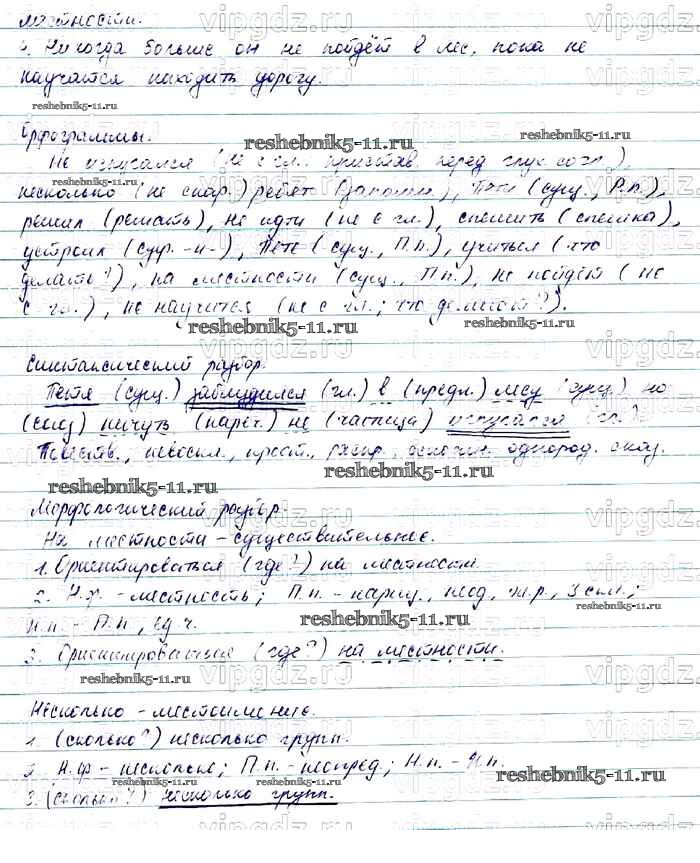 местности.
4. Никогда больше он не пойдёт в лес, пока не
научатся находить дорогу.
Орфограммы.
Не испугался (не с гл.; пристав. перед глух. согл.),
несколько (не снар.) ребят (запомин.), Пети (сущ., Р.п.),
решил (решать), не идти (не с гл.), спешить (спешка),
устроил (суф. -и-), Пете (сущ., П.п.), учиться (что
делать?), на местности (сущ., П.п.), не пойдёт (не
с гл.), не научится (не с гл.; что делают?).
Синтаксический разбор.
Петя (сущ.) заблудился (гл.) в (предл.) лесу (сущ.) но
(союз) ничуть (нареч.) не (частица) испугался (гл.)
Повеств., невоскл., прост., распр., осложнен. однород. сказ.
Морфологический разбор.
На местности - существительное.
1. Ориентироваться (где?) на местности.
2. Н.ф. - местность; П.п. - нариц., неод., ж.р., 3 скл.;
Н.п. - П.п., ед.ч.
3. Ориентироваться (где?) на местности.
Несколько - местоимение.
1. (сколько?) несколько групп.
2. Н.ф - несколько; П.п. - неопред.; Н.п. - И.п.
3. (сколько?) несколько групп.
reshebnik5-11.ru
vipgdz.ru